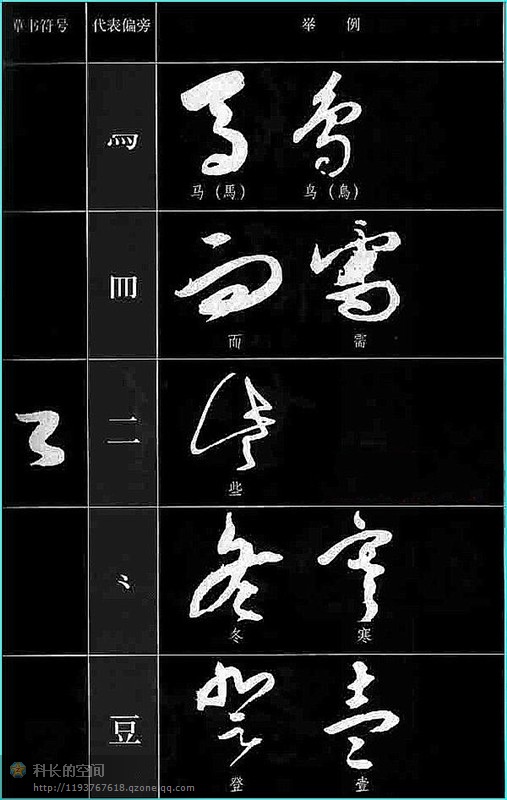 草书符号 代表偏旁 举 例
马（馬） 鸟（鳥）
面 需
二
些
⺀
冬 寒
豆
登 壹
科长的空间
http://1193767618.qzone.qq.com